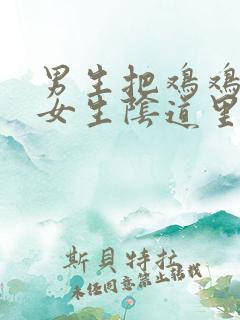 男生把鸡鸡
女生陰道里
斯貝特拉
未经同意禁止转载